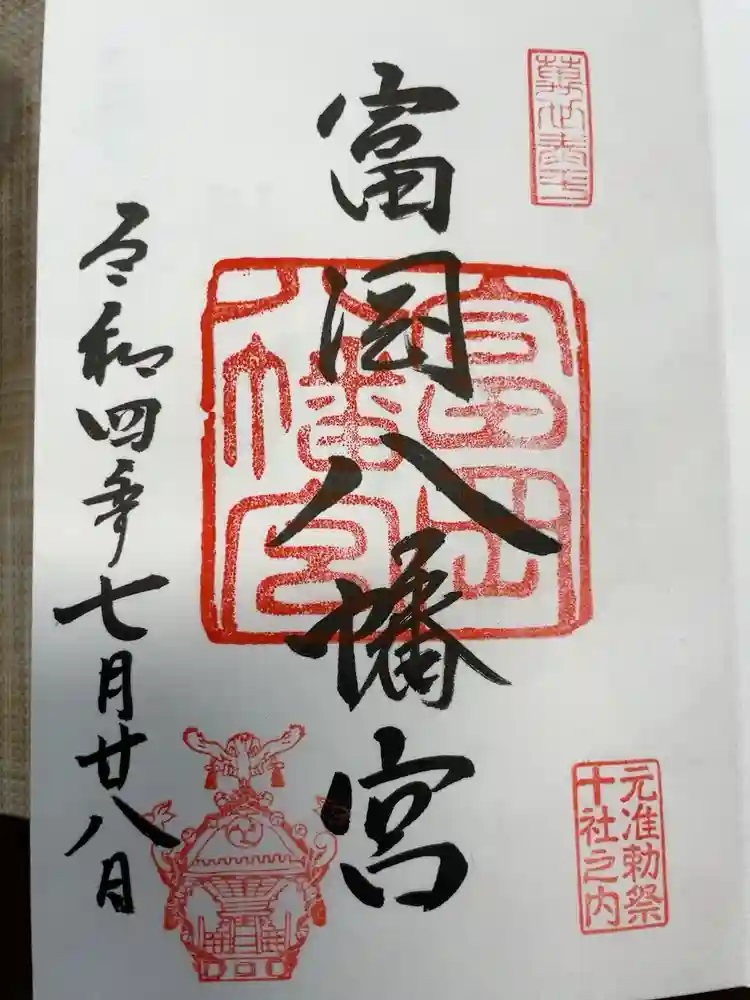 富岡八幡宮
富岡
八幡宮
元准勅祭
十社之内
令和四年七月廿八日